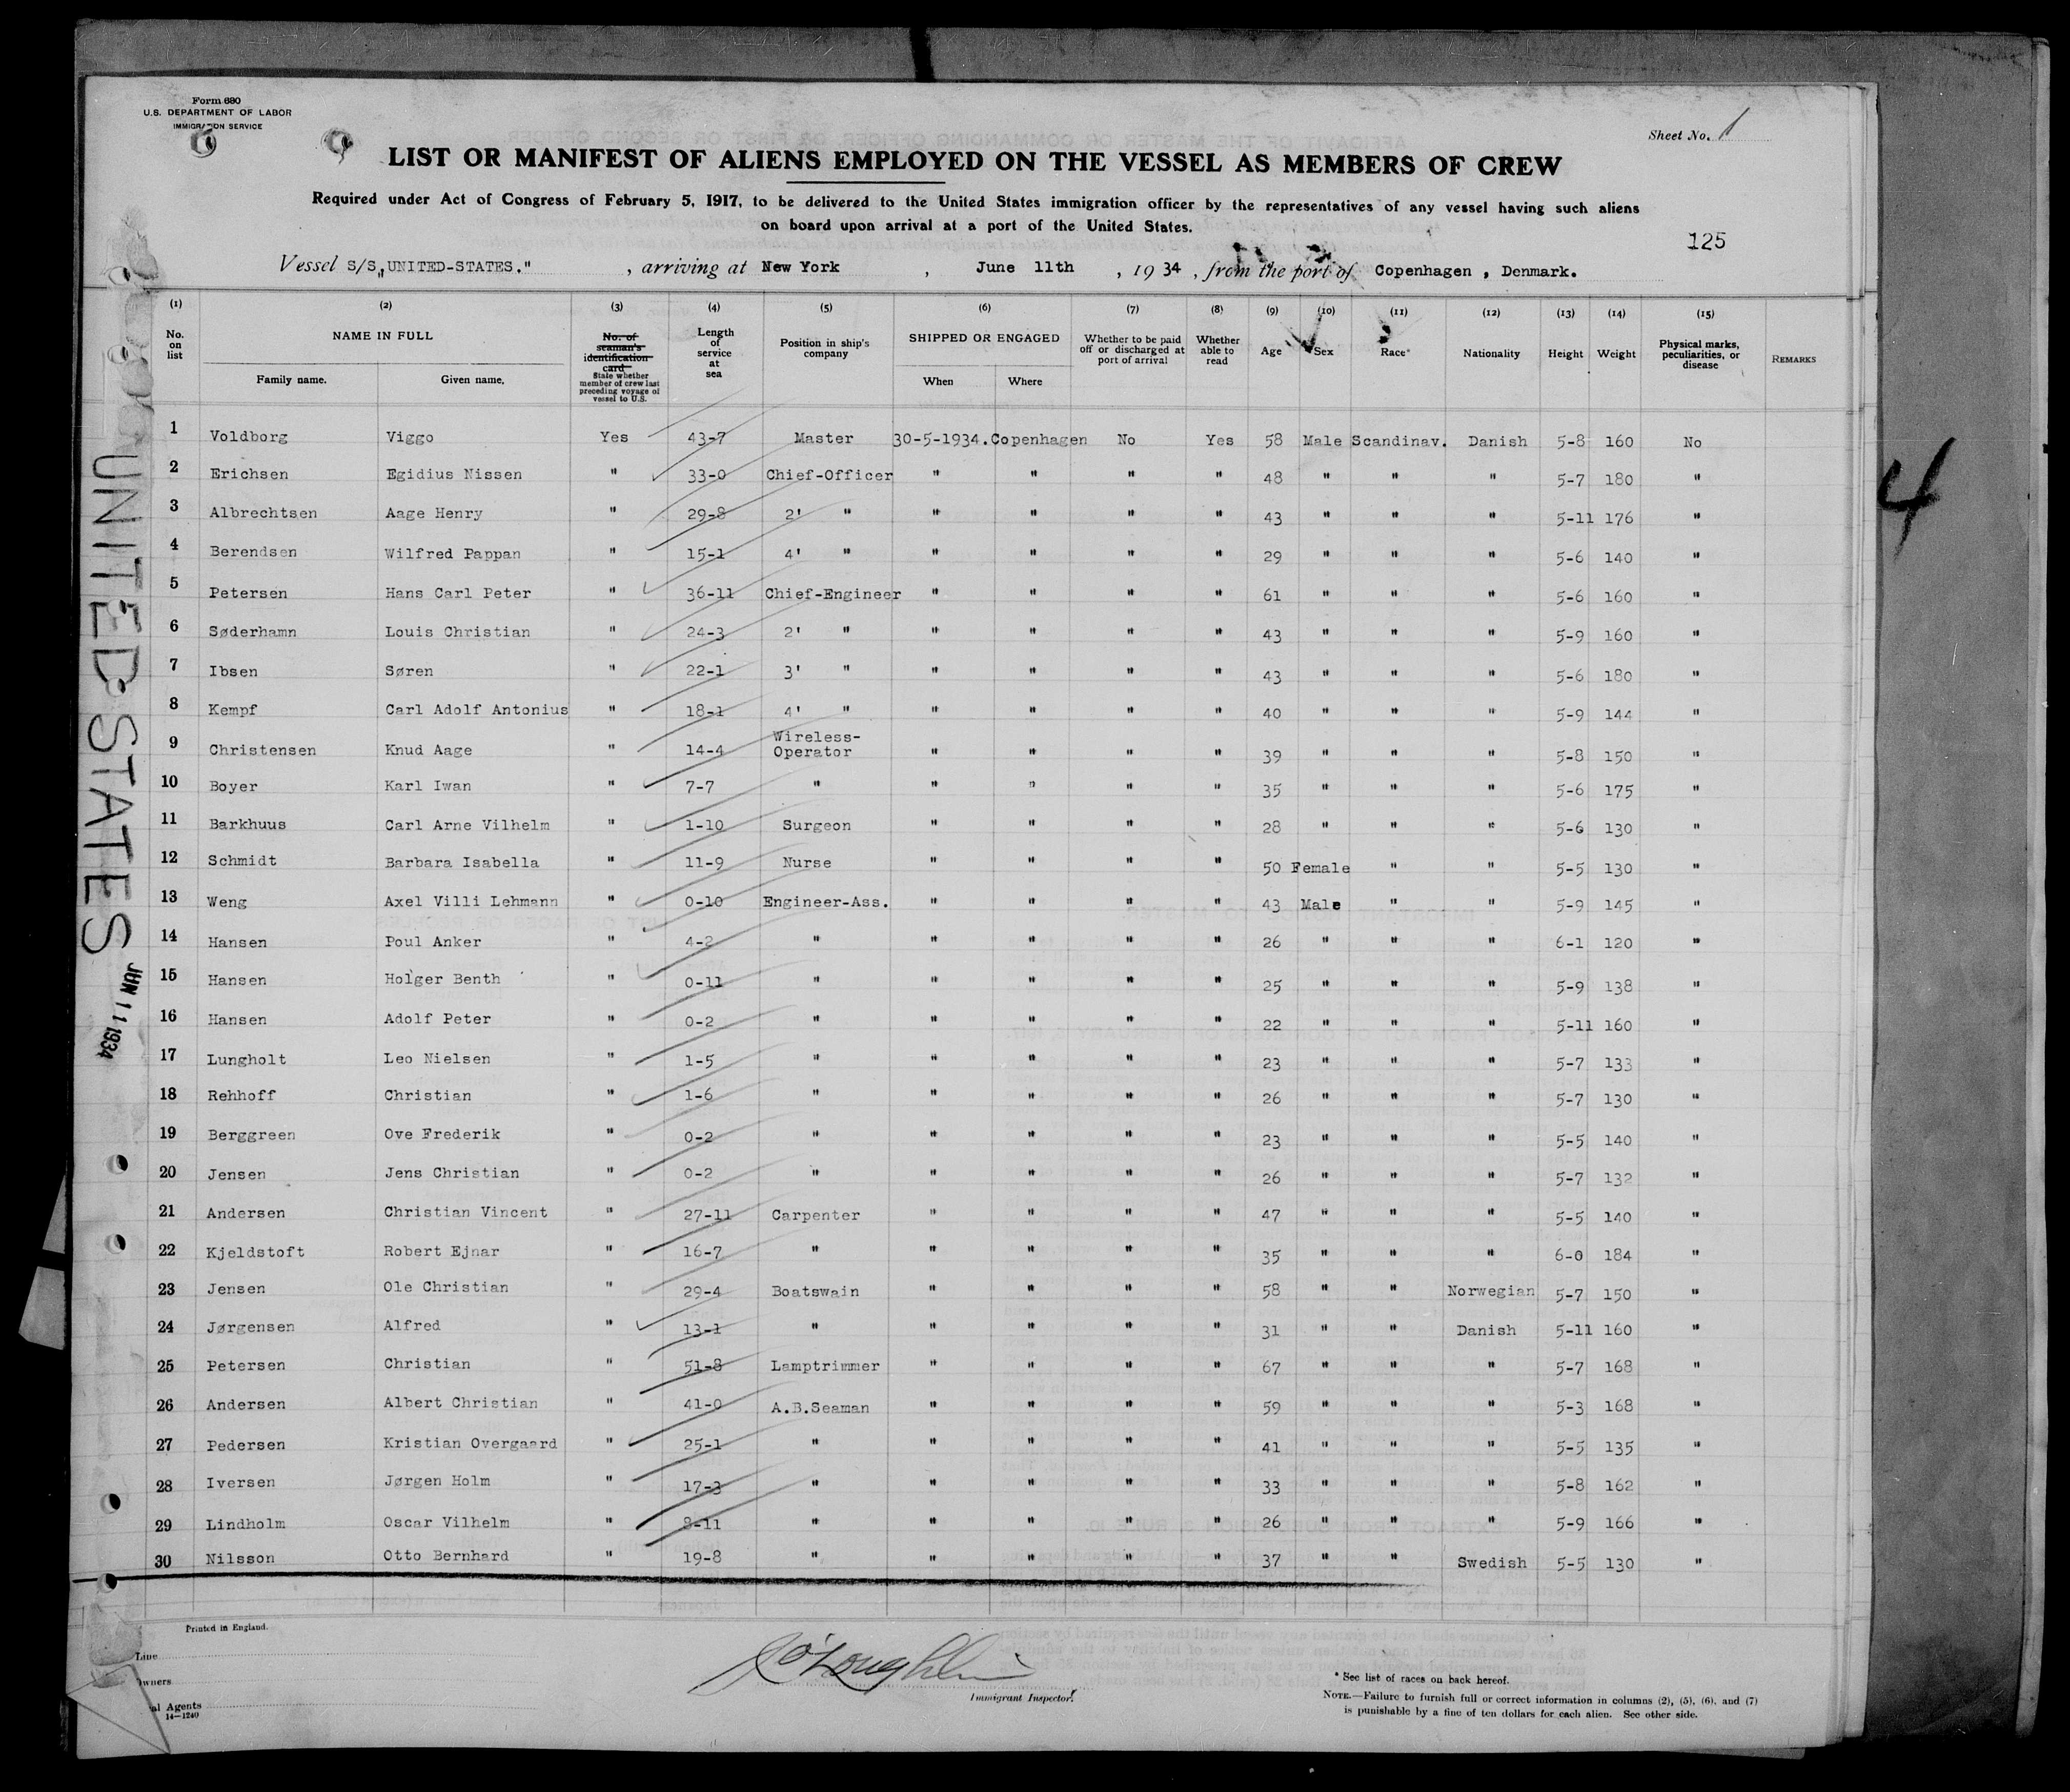 Form 680
U.S. DEPARTMENT OF LABOR
IMMIGRATION SERVICE
Sheet No. 1
LIST OR MANIFEST OF ALIENS EMPLOYED ON THE VESSEL AS MEMBERS OF CREW
Required under Act of Congress of February 5, 1917, to be delivered to the United States immigration officer by the representatives of any vessel having such aliens
on board upon arrival at a port of the United States.
125
Vessel S/S„UNITED-STATES." , arriving at New York , June 11th , 1934 , from the port of Copenhagen , Denmark.
(1) (2) (3) (4) (5) (6) (7) (8) (9) (10) (11) (12) (13) (14) (15)
No. on list NAME IN FULL Family name. Given name. No. of seaman's identification card State whether member of crew last preceding voyage of vessel to U.S. Length of service at sea Position in ship's company SHIPPED OR ENGAGED When Where Whether to be paid off or discharged at port of arrival Whether able to read Age Sex Race* Nationality Height Weight Physical marks, peculiarities, or disease REMARKS
1 Voldborg Viggo Yes 43-7 Master 30-5-1934. Copenhagen No Yes 58 Male Scandinav. Danish 5-8 160 No
2 Erichsen Egidius Nissen " 33-0 Chief-Officer " " " " 48 " " " 5-7 180 "
3 Albrechtsen Aage Henry " 29-8 2' " " " " " 43 " " " 5-11 176 "
4 Berendsen Wilfred Pappan " 15-1 4' " " " " " 29 " " " 5-6 140 "
5 Petersen Hans Carl Peter " 36-11 Chief-Engineer " " " " 61 " " " 5-6 160 "
6 Søderhamn Louis Christian " 24-3 2' " " " " " 43 " " " 5-9 160 "
7 Ibsen Søren " 22-1 3' " " " " " 43 " " " 5-6 180 "
8 Kempf Carl Adolf Antonius " 18-1 4' " " " " " 40 " " " 5-9 144 "
9 Christensen Knud Aage " 14-4 Wireless-Operator " " " " 39 " " " 5-8 150 "
10 Boyer Karl Iwan " 7-7 " " " " " 35 " " " 5-6 175 "
11 Barkhuus Carl Arne Vilhelm " 1-10 Surgeon " " " " 28 " " " 5-6 130 "
12 Schmidt Barbara Isabella " 11-9 Nurse " " " " 50 Female " " 5-5 130 "
13 Weng Axel Villi Lehmann " 0-10 Engineer-Ass. " " " " 43 Male " " 5-9 145 "
14 Hansen Poul Anker " 4-2 " " " " " 26 " " " 6-1 120 "
15 Hansen Holger Benth " 0-11 " " " " " 25 " " " 5-9 138 "
16 Hansen Adolf Peter " 0-2 " " " " " 22 " " " 5-11 160 "
17 Lungholt Leo Nielsen " 1-5 " " " " " 23 " " " 5-7 133 "
18 Rehhoff Christian " 1-6 " " " " " 26 " " " 5-7 130 "
19 Berggreen Ove Frederik " 0-2 " " " " " 23 " " " 5-5 140 "
20 Jensen Jens Christian " 0-2 " " " " " 26 " " " 5-7 132 "
21 Andersen Christian Vincent " 27-11 Carpenter " " " " 47 " " " 5-5 140 "
22 Kjeldstoft Robert Ejnar " 16-7 " " " " " 35 " " " 6-0 184 "
23 Jensen Ole Christian " 29-4 Boatswain " " " " 58 " " Norwegian 5-7 150 "
24 Jørgensen Alfred " 13-1 " " " " " 31 " " Danish 5-11 160 "
25 Petersen Christian " 51-8 Lamptrimmer " " " " 67 " " " 5-7 168 "
26 Andersen Albert Christian " 41-0 A.B.Seaman " " " " 59 " " " 5-3 168 "
27 Pedersen Kristian Overgaard " 25-1 " " " " " 41 " " " 5-5 135 "
28 Iversen Jørgen Holm " 17-3 " " " " " 33 " " " 5-8 162 "
29 Lindholm Oscar Vilhelm " 8-11 " " " " " 26 " " " 5-9 166 "
30 Nilsson Otto Bernhard " 19-8 " " " " " 37 " " Swedish 5-5 130 "
UNITED STATES
JUN 11 1934
4
Printed in England.
Line
Owners
al Agents
14—1240
J O'Loughlin
Immigrant Inspector.
* See list of races on back hereof.
NOTE.—Failure to furnish full or correct information in columns (2), (5), (6), and (7)
is punishable by a fine of ten dollars for each alien. See other side.